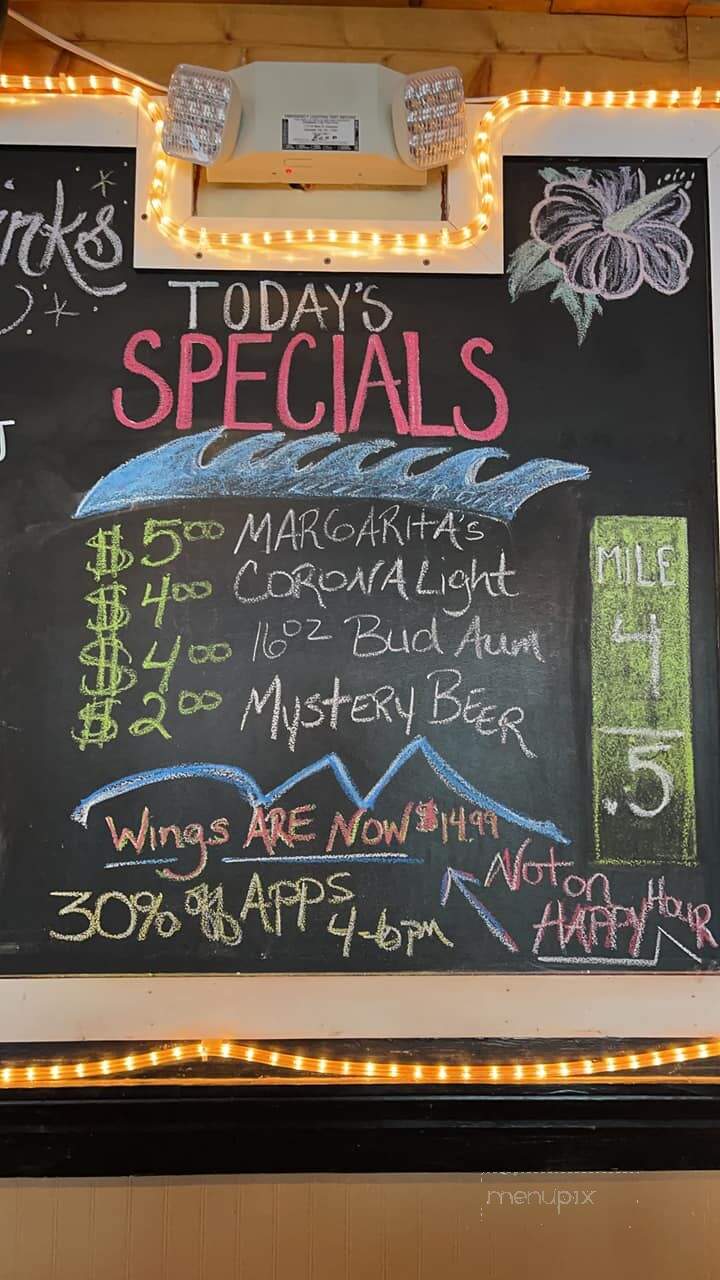 TODAY'S
SPECIALS
$5.00 MARGARITA's
$4.00 CORONA Light
$4.00 16oz Bud Alum
$2.00 MYSTERY BEER
MILE
4
.5
Wings ARE NOW $14.99
Not on
HAPPY HOUR
30% off APPS
4-6pm
menupix